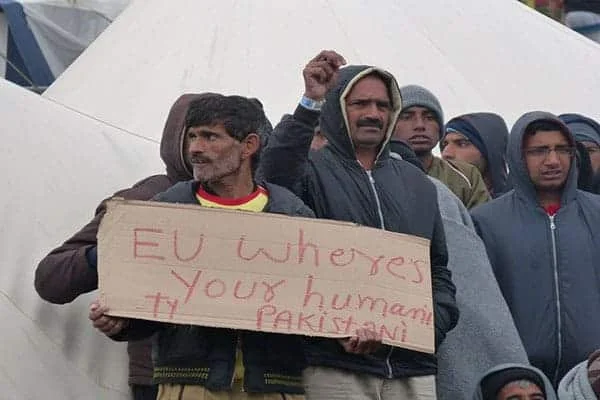 EU where's
Your humani
TY PAKISTANi